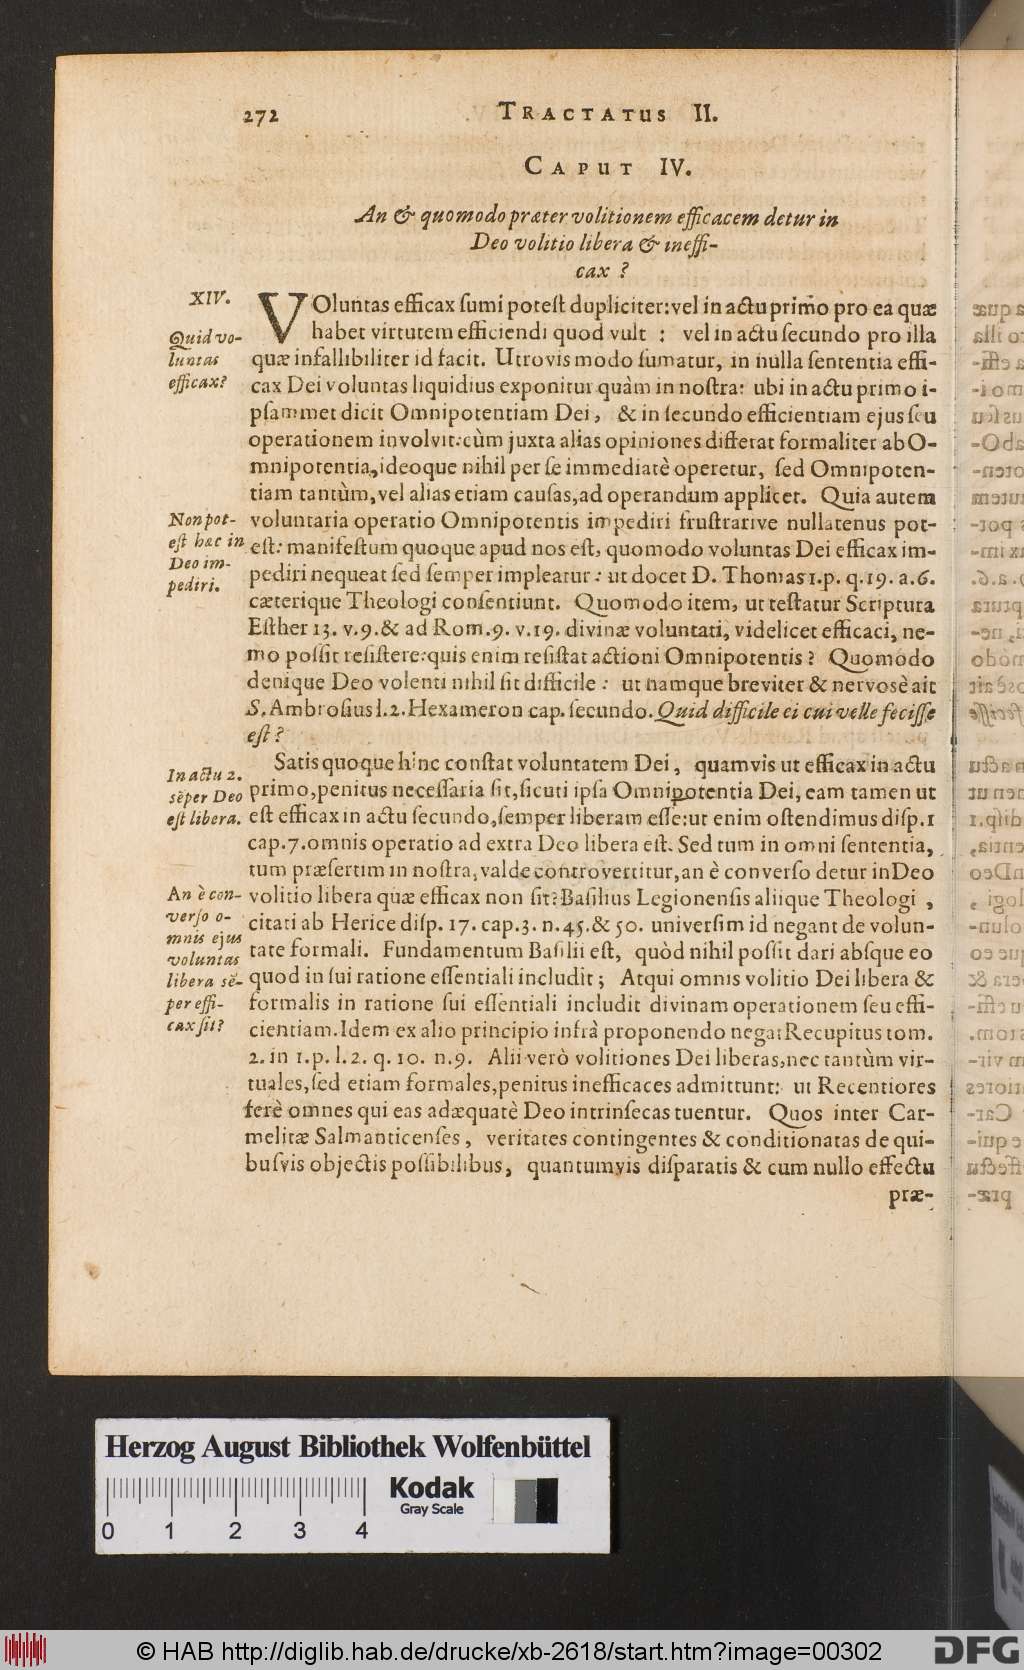 272
TRACTATUS II.
CAPUT IV.
An & quomodo præter volitionem efficacem detur in
Deo volitio libera & ineffi-
cax ?
XIV.
Quid vo-
luntas
efficax?
VOluntas efficax sumi potest dupliciter: vel in actu primo pro ea quæ
habet virtutem efficiendi quod vult : vel in actu secundo pro illa
quæ infallibiliter id facit. Utrovis modo sumatur, in nulla sententia effi-
cax Dei voluntas liquidius exponitur quàm in nostra: ubi in actu primo i-
psammet dicit Omnipotentiam Dei, & in secundo efficientiam ejus seu
operationem involvit: cùm juxta alias opiniones differat formaliter ab O-
mnipotentia, ideoque nihil per se immediatè operetur, sed Omnipoten-
tiam tantùm, vel alias etiam causas, ad operandum applicet. Quia autem
Non pot-
est hæc in
Deo im-
pediri.
voluntaria operatio Omnipotentis impediri frustrarive nullatenus pot-
est: manifestum quoque apud nos est, quomodo voluntas Dei efficax im-
pediri nequeat sed semper impleatur: ut docet D. Thomas 1. p. q. 19. a. 6.
cæterique Theologi consentiunt. Quomodo item, ut testatur Scriptura
Esther 13. v. 9. & ad Rom. 9. v. 19. divinæ voluntati, videlicet efficaci, ne-
mo possit resistere: quis enim resistat actioni Omnipotentis? Quomodo
denique Deo volenti nihil sit difficile: ut namque breviter & nervosè ait
S. Ambrosius l. 2. Hexameron cap. secundo. Quid difficile ei cui velle fecisse
est ?
In actu 2.
sẽper Deo
est libera.
Satis quoque hinc constat voluntatem Dei, quamvis ut efficax in actu
primo, penitus necessaria sit, sicuti ipsa Omnipotentia Dei, eam tamen ut
est efficax in actu secundo, semper liberam esse: ut enim ostendimus disp. 1
cap. 7. omnis operatio ad extra Deo libera est. Sed tum in omni sententia,
tum præsertim in nostra, valde controvertitur, an è converso detur in Deo
An è con-
verso o-
mnis ejus
voluntas
libera sẽ-
per effi-
cax sit?
volitio libera quæ efficax non sit? Basilius Legionensis aliique Theologi,
citati ab Herice disp. 17. cap. 3. n. 45. & 50. universim id negant de volun-
tate formali. Fundamentum Basilii est, quòd nihil possit dari absque eo
quod in sui ratione essentiali includit; Atqui omnis volitio Dei libera &
formalis in ratione sui essentiali includit divinam operationem seu effi-
cientiam. Idem ex alio principio infrà proponendo negat Recupitus tom.
2. in 1. p. l. 2. q. 10. n. 9. Alii verò volitiones Dei liberas, nec tantùm vir-
tuales, sed etiam formales, penitus inefficaces admittunt: ut Recentiores
ferè omnes qui eas adæquatè Deo intrinsecas tuentur. Quos inter Car-
melitæ Salmanticenses, veritates contingentes & conditionatas de qui-
busvis objectis possibilibus, quantumvis disparatis & cum nullo effectu
præ-
Herzog August Bibliothek Wolfenbüttel
Kodak
Gray Scale
0 1 2 3 4
© HAB http://diglib.hab.de/drucke/xb-2618/start.htm?image=00302
DFG